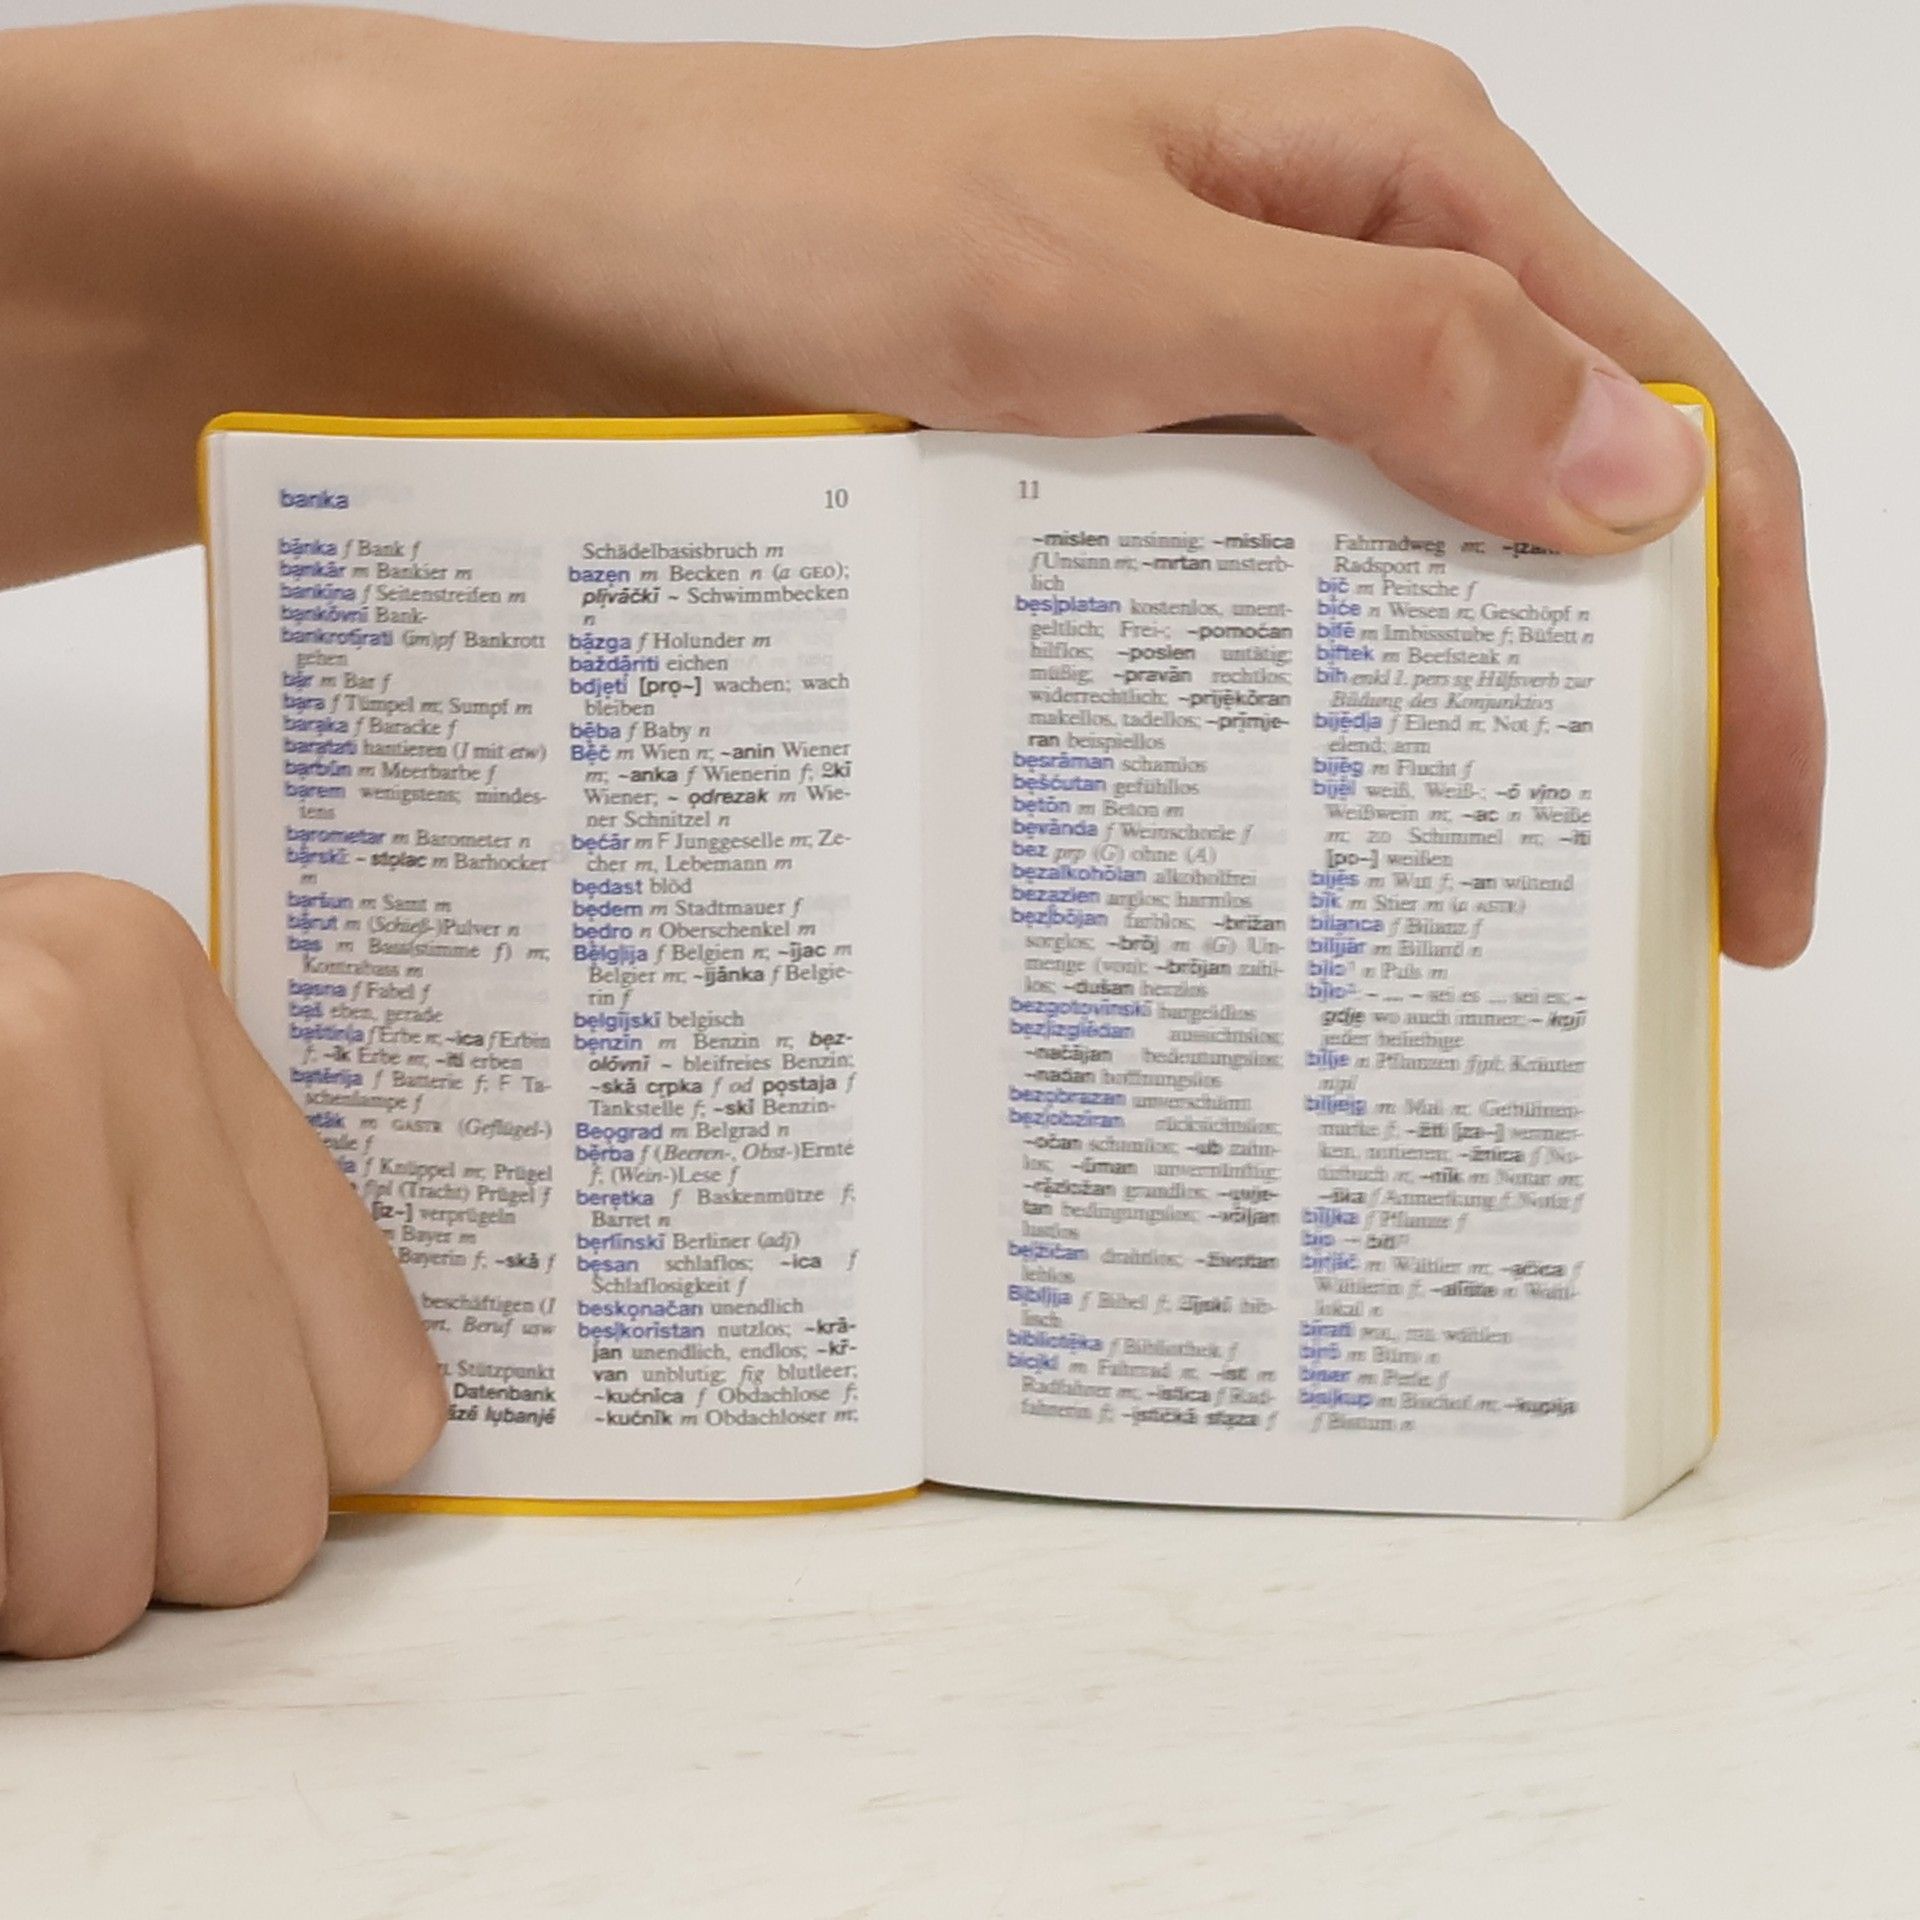 banka
10
bānka f Bank f
bankār m Bankier m
bankina f Seitenstreifen m
bankōvnī Bank-
bankrotīrati (im)pf Bankrott
gehen
bār m Bar f
bara f Tümpel m; Sumpf m
baraka f Baracke f
baratati hantieren (I mit etw)
barbūn m Meerbarbe f
barem wenigstens; mindes-
tens
barometar m Barometer n
bārskī: ~ stolac m Barhocker
m
baršun m Samt m
barut m (Schieß-)Pulver n
bas m Bass(stimme f) m;
Kontrabass m
basna f Fabel f
baš eben, gerade
baštin|a f Erbe n; ~ica f Erbin
f; ~īk Erbe m; ~iti erben
batērija f Batterie f; F Ta-
schenlampe f
m GASTR (Geflügel-)
f
f Knüppel m; Prügel
f/pl (Tracht) Prügel f
[iz~] verprügeln
m Bayer m
Bayerin f; ~skā f
beschäftigen (I
Beruf usw
Stützpunkt
Datenbank
Schädelbasisbruch m
bazen m Becken n (a GEO);
plivāćkī ~ Schwimmbecken
n
bāzga f Holunder m
baždāriti eichen
bdjeti [pro~] wachen; wach
bleiben
bēba f Baby n
Bēč m Wien n; ~anin Wiener
m; ~anka f Wienerin f; ~kī
Wiener; ~ odrezak m Wie-
ner Schnitzel n
bećār m F Junggeselle m; Ze-
cher m, Lebemann m
bedast blöd
bedem m Stadtmauer f
bedro n Oberschenkel m
Bèlg|ija f Belgien n; ~ījac m
Belgier m; ~ijānka f Belgie-
rin f
belgījskī belgisch
benzīn m Benzin n; bez-
olóvnī ~ bleifreies Benzin;
~skā crpka f od postaja f
Tankstelle f; ~skī Benzin-
Beograd m Belgrad n
bērba f (Beeren-, Obst-)Ernte
f; (Wein-)Lese f
beretka f Baskenmütze f;
Barret n
berlīnskī Berliner (adj)
besan schlaflos; ~ica f
Schlaflosigkeit f
beskonačan unendlich
bes|koristan nutzlos; ~krā-
jan unendlich, endlos; ~kr̄-
van unblutig; fig blutleer;
~kućnica f Obdachlose f;
~kućnīk m Obdachloser m;
11
~mislen unsinnig; ~mislica
f Unsinn m; ~mrtan unsterb-
lich
bes|platan kostenlos, unent-
geltlich; Frei-; ~pomoćan
hilflos; ~poslen untätig;
müßig; ~prāvan rechtlos;
widerrechtlich; ~prijēkōran
makellos, tadellos; ~primje-
ran beispiellos
besrāman schamlos
bešćutan gefühllos
betōn m Beton m
bevānda f Weinschorle f
bez prp (G) ohne (A)
bezalkohōlan alkoholfrei
bezazlen arglos; harmlos
bez|bōjan farblos; ~brižan
sorglos; ~brōj m (G) Un-
menge (von); ~brōjan zahl-
los; ~dušan herzlos
bezgotovīnskī bargeldlos
bez|izglēdan aussichtslos;
~načājan bedeutungslos;
~nadan hoffnungslos
bezobrazan unverschämt
bez|obzīran rücksichtslos;
~očan schamlos; ~ub zahn-
los; ~ūman unvernünftig;
~rāzložan grundlos; ~uvje-
tan bedingungslos; ~vōljan
lustlos
bežičan drahtlos; ~životan
leblos
Bibli|ja f Bibel f; ~jskī bib-
lisch
bibliotēka f Bibliothek f
bicikl m Fahrrad n; ~ist m
Radfahrer m; ~istica f Rad-
fahrerin f; ~ističkā staza f
Fahrradweg m;
Radsport m
bič m Peitsche f
biće n Wesen n; Geschöpf n
bifē m Imbissstube f; Büfett n
biftek m Beefsteak n
bih enkl 1. pers sg Hilfsverb zur
Bildung des Konjunktivs
bijēd|a f Elend n; Not f; ~an
elend; arm
bijēg m Flucht f
bijēl weiß, Weiß-; ~ō vīno n
Weißwein m; ~ac n Weiße
m; zo Schimmel m; ~iti
[po~] weißen
bijēs m Wut f; ~an wütend
bīk m Stier m (a ASTR)
bilanca f Bilanz f
bilijār m Billard n
bilo¹ n Puls m
bilo² ~ ... ~ sei es ... sei es; ~
gdje wo auch immer; ~ kojī
jeder beliebige
bīlje n Pflanzen f/pl; Kräuter
n/pl
biljka f Pflanze f
birati wählen
birō m Büro n
biser m Perle f
biskup m Bischof m; ~kupija
f Bistum n